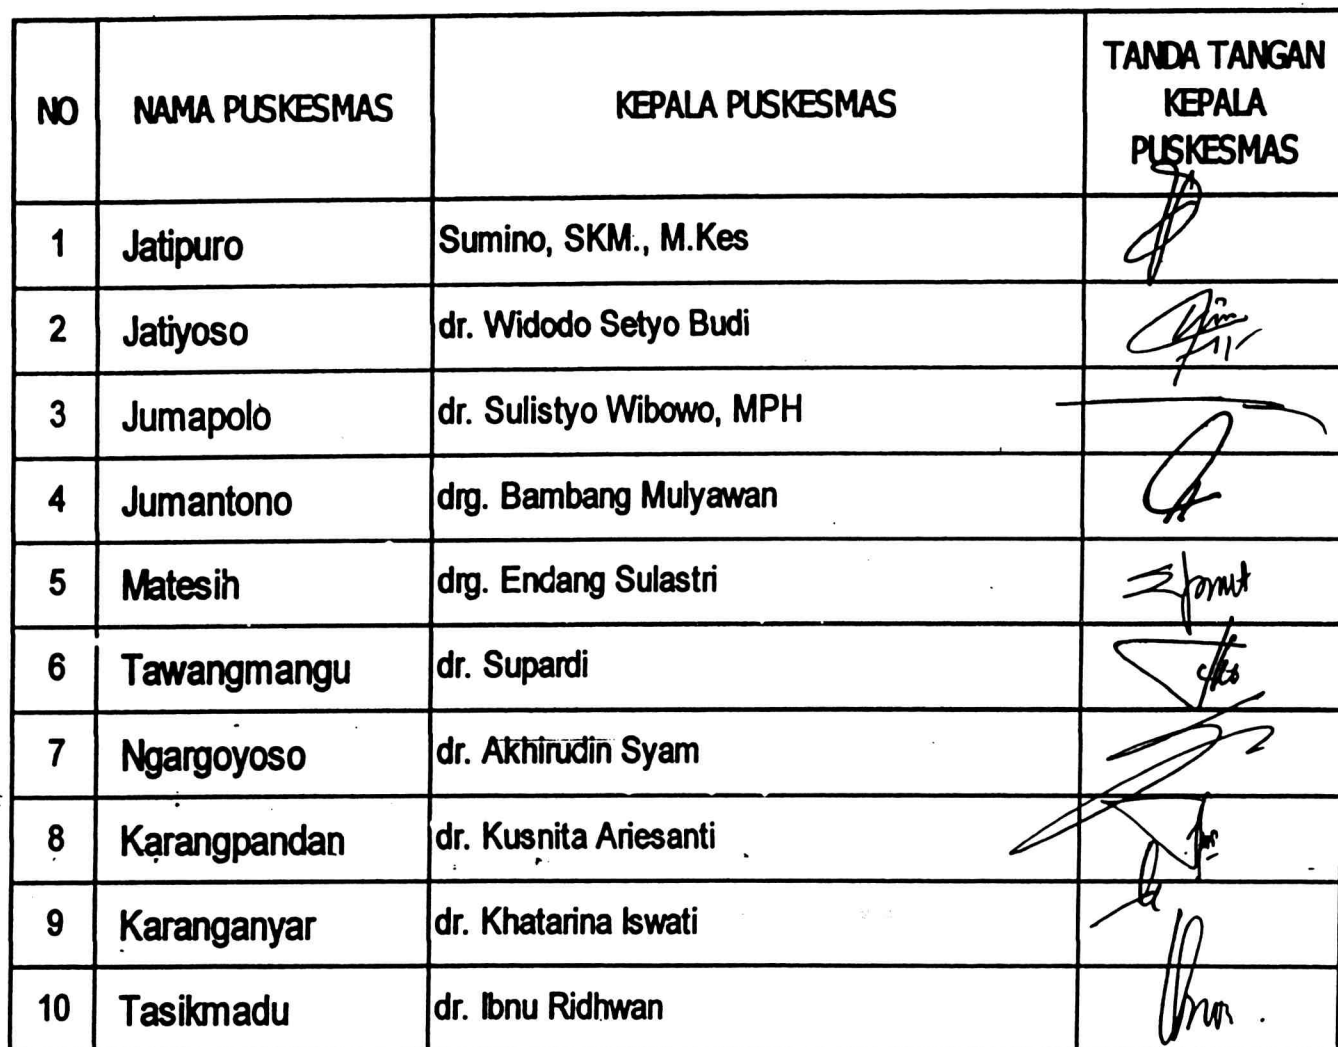 NO NAMA PUSKESMAS KEPALA PUSKESMAS TANDA TANGAN
KEPALA
PUSKESMAS
1 Jatipuro Sumino, SKM., M.Kes
2 Jatiyoso dr. Widodo Setyo Budi
3 Jumapolo dr. Sulistyo Wibowo, MPH
4 Jumantono drg. Bambang Mulyawan
5 Matesih drg. Endang Sulastri
6 Tawangmangu dr. Supardi
7 Ngargoyoso dr. Akhirudin Syam
8 Karangpandan dr. Kusnita Ariesanti
9 Karanganyar dr. Khatarina Iswati
10 Tasikmadu dr. Ibnu Ridhwan